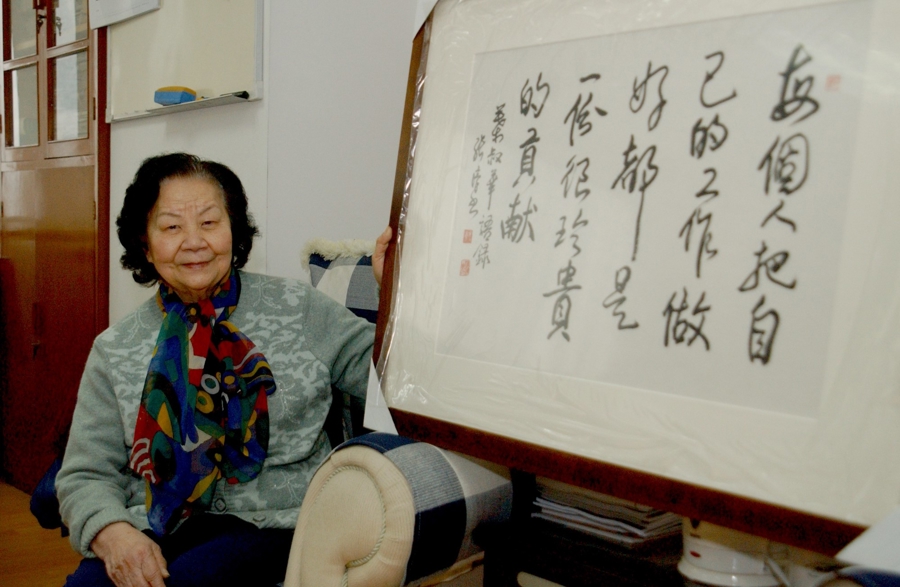 每個人把自
己的工作做
好都是
一份很珍貴
的貢献
葉叔華語録